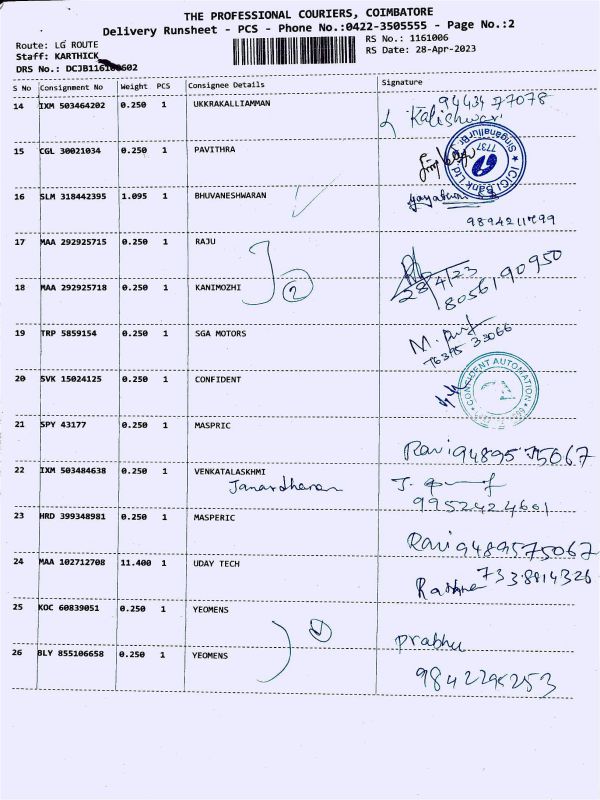 THE PROFESSIONAL COURIERS, COIMBATORE
Delivery Runsheet - PCS - Phone No.:0422-3505555 - Page No.:2
Route: LG ROUTE
RS No.: 1161006
Staff: KARTHICK
RS Date: 28-Apr-2023
DRS No.: DCJB116100602
S No Consignment No Weight PCS Consignee Details Signature
14 IXM 503464202 0.250 1 UKKRAKALLIAMMAN 9443477078
Kalishwari
15 CGL 30021034 0.250 1 PAVITHRA
ICICI Bank Ltd. Singanallur Br. 7737
16 SLM 318442395 1.095 1 BHUVANESHWARAN
9894211799
17 MAA 292925715 0.250 1 RAJU
28/4/23
18 MAA 292925718 0.250 1 KANIMOZHI 2 8056190950
19 TRP 5859154 0.250 1 SGA MOTORS M.
76375 33066
20 SVK 15024125 0.250 1 CONFIDENT
CONFIDENT AUTOMATION
21 SPY 43177 0.250 1 MASPRIC
Ravi 9489575067
22 IXM 503484638 0.250 1 VENKATALASKHMI J.
Janardhanan 9952424601
23 HRD 399348981 0.250 1 MASPERIC
Ravi 9489575067
24 MAA 102712708 11.400 1 UDAY TECH
7338814326
25 KOC 60839051 0.250 1 YEOMENS
Prabhu
26 BLY 855106658 0.250 1 YEOMENS
9842295253